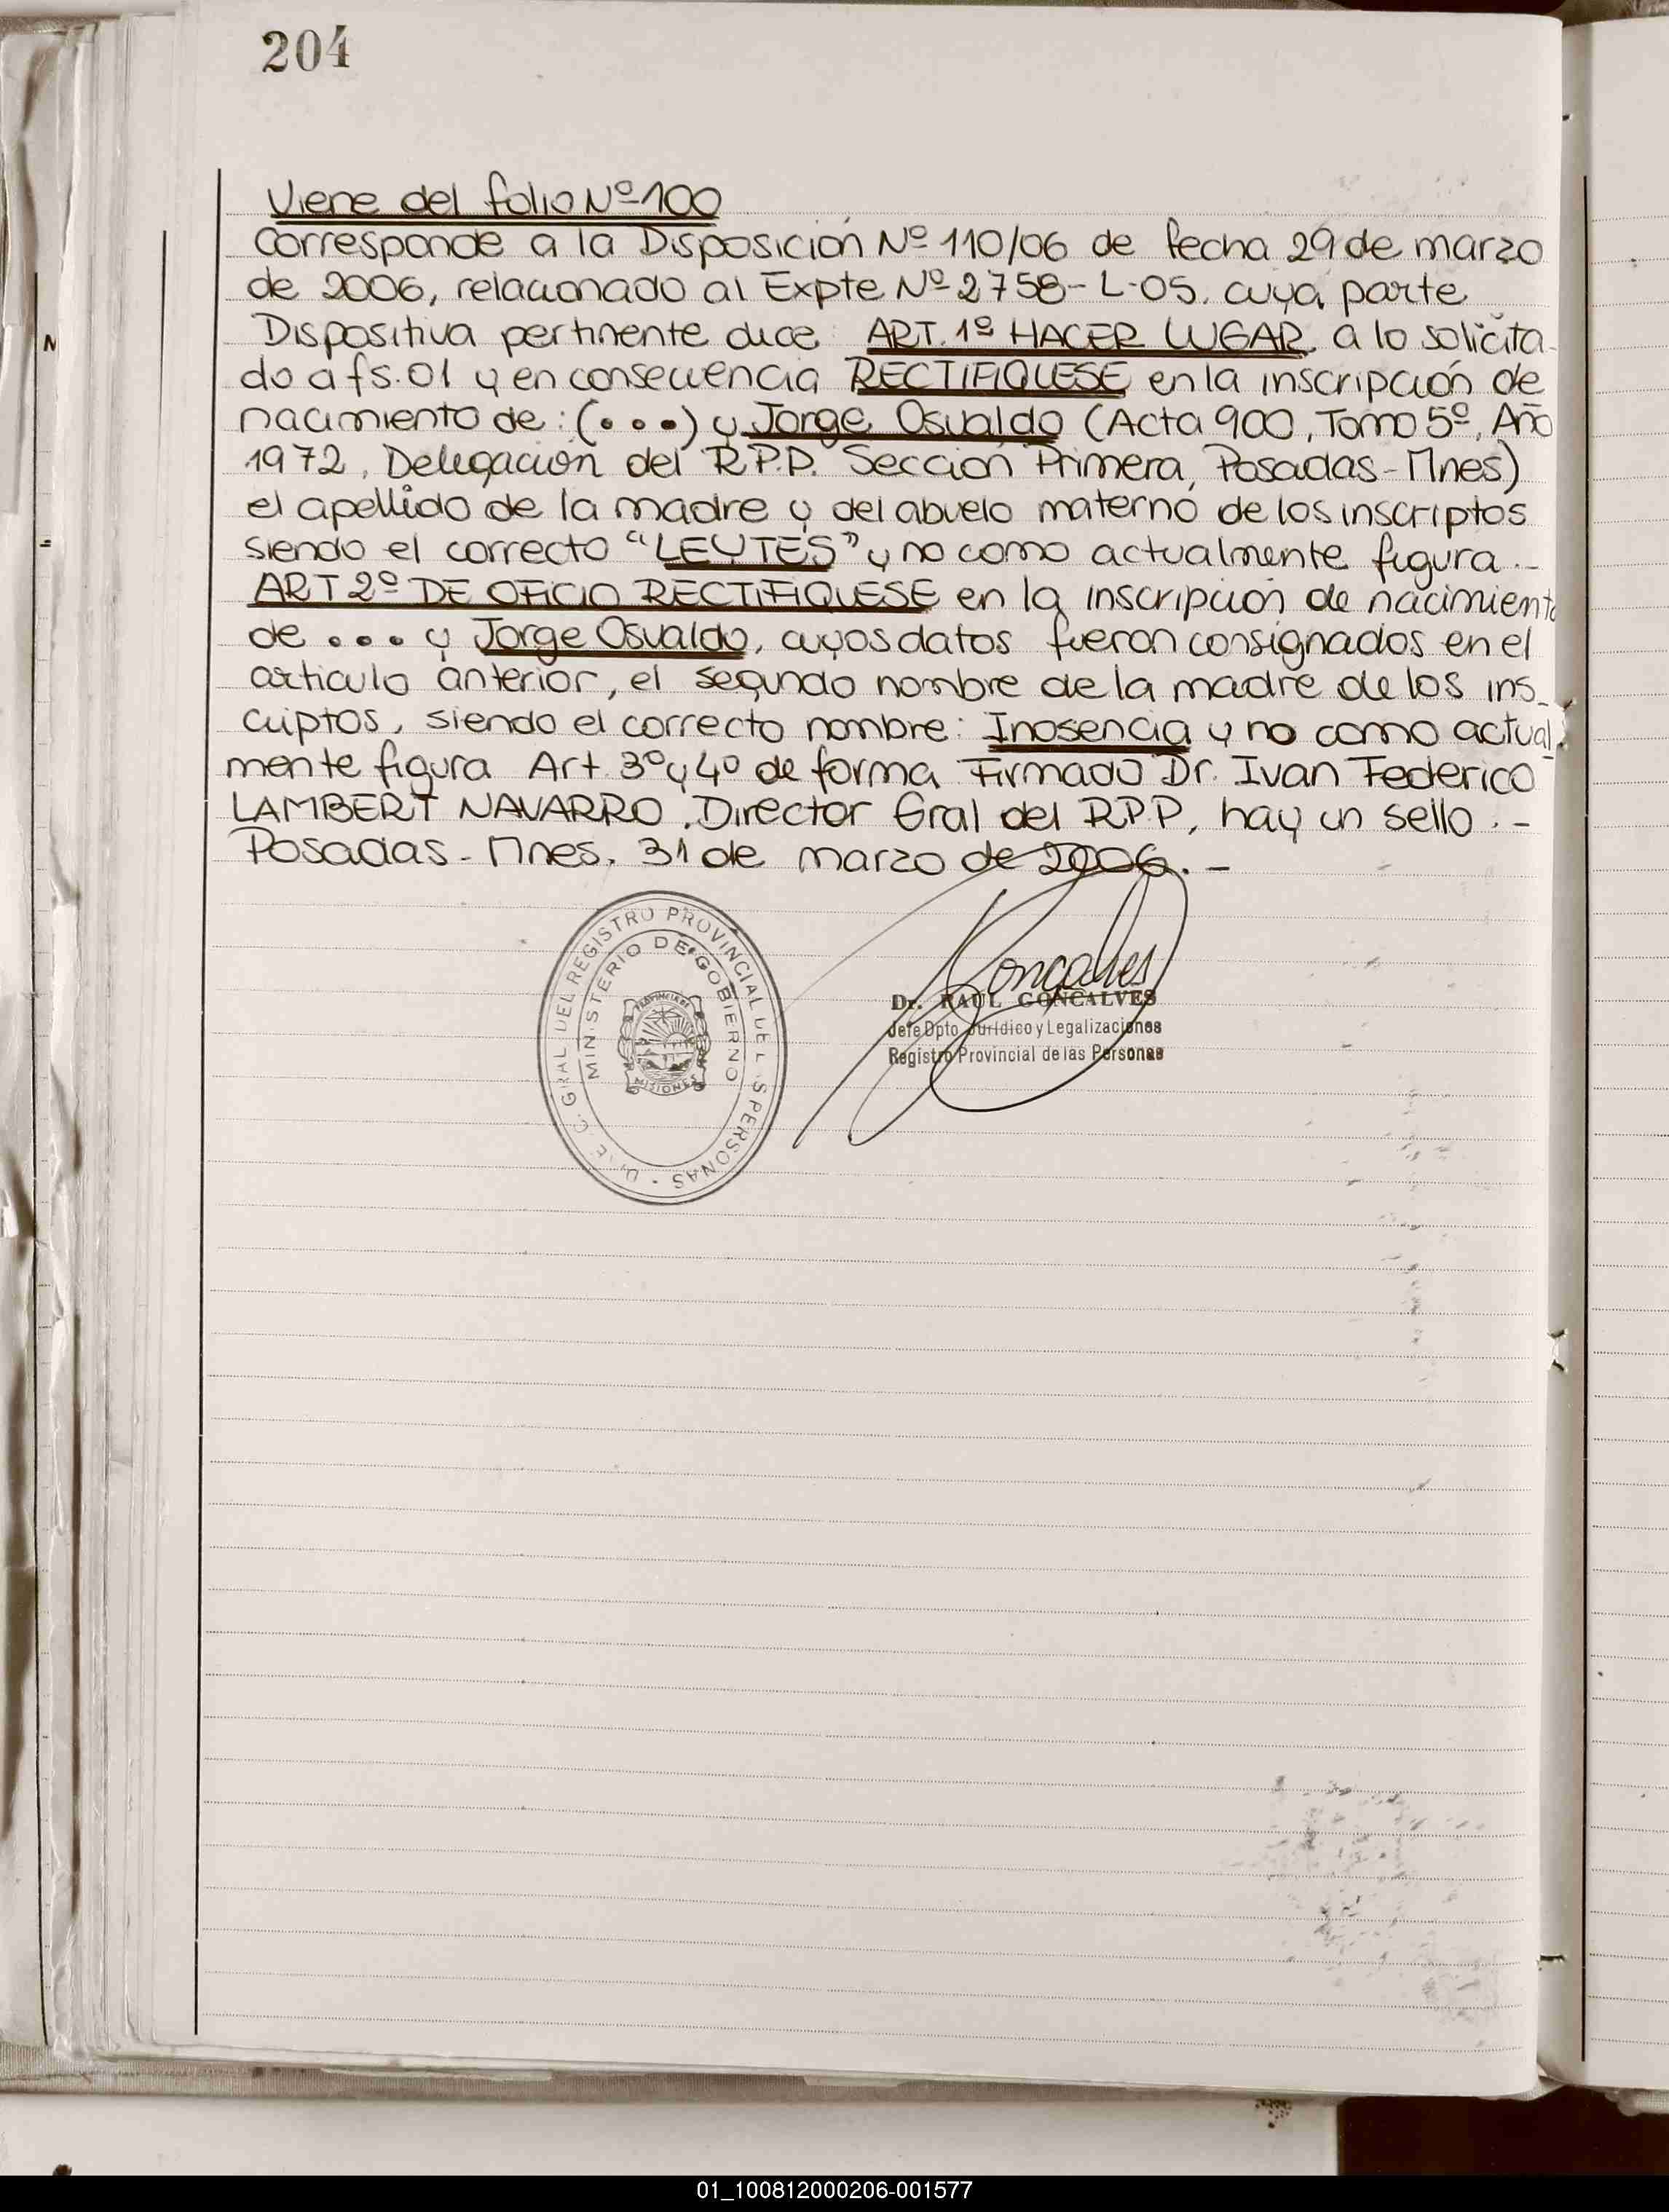 204
Viene del folio Nº 100
Corresponde a la Disposición Nº 110/06 de fecha 29 de marzo
de 2006, relacionado al Expte Nº 2758-L-05. cuya parte
Dispositiva pertinente dice: ART. 1º HACER LUGAR a lo solicita-
do a fs. 01 y en consecuencia RECTIFIQUESE en la inscripción de
nacimiento de: (...) y Jorge Osvaldo (Acta 900, Tomo 5º, Año
1972, Delegación del R.P.P. Sección Primera, Posadas-Mnes)
el apellido de la madre y del abuelo materno de los inscriptos
siendo el correcto "LEYTES" y no como actualmente figura.-
ART 2º DE OFICIO RECTIFIQUESE en la inscripción de nacimiento
de ... y Jorge Osvaldo, cuyos datos fueron consignados en el
articulo anterior, el segundo nombre de la madre de los ins-
criptos, siendo el correcto nombre: Inosencia y no como actual-
mente figura Art. 3º y 4º de forma Firmado Dr. Ivan Federico
LAMBERT NAVARRO. Director Gral del R.P.P, hay un sello.-
Posadas-Mnes. 31 de marzo de 2006.-
GRAL DEL REGISTRO PROVINCIAL DE L S PERSONAS
MINISTERIO DE GOBIERNO
PROVINCIA DE
MISIONES
Goncalves
Dr. RAUL GONCALVES
Jefe Dpto. Jurídico y Legalizaciones
Registro Provincial de las Personas
N
=
01_100812000206-001577